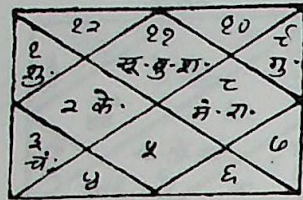 १२ ११ १० ९
१ शु· सू·बु·श· गु·
२ के· ८ मं·रा·
३ चं· ५ ७
४ ६